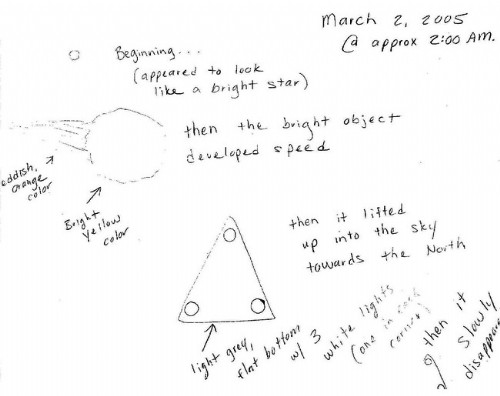 March 2, 2005
@ approx 2:00 AM.
Beginning...
(appeared to look
like a bright star)
then the bright object
developed speed
eddish,
orange
color
Bright
Yellow
color
then it lifted
up into the sky
towards the North
light grey,
flat bottom
w/ 3
white lights
(one in each
corner)
then it
slowly
disappear